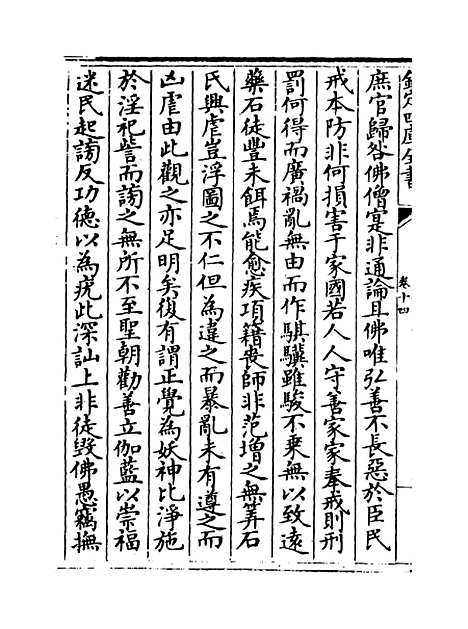 欽定四庫全書
卷十四
庶官歸咎佛僧寔非通論且佛唯弘善不長惡於臣民
戒本防非何損害于家國若人人守善家家奉戒則刑
罰何得而廣禍亂無由而作騏驥雖駿不乗無以致遠
藥石徒豐未餌焉能愈疾項籍喪師非范增之無筭石
氏興虐豈浮圖之不仁但為違之而暴亂未有遵之而
凶虐由此觀之亦足明矣復有謂正覺為妖神比淨施
於淫祀訾而謗之無所不至聖朝勸善立伽藍以崇福
迷民起謗反功德以為疣此深訕上非徒毀佛愚竊撫